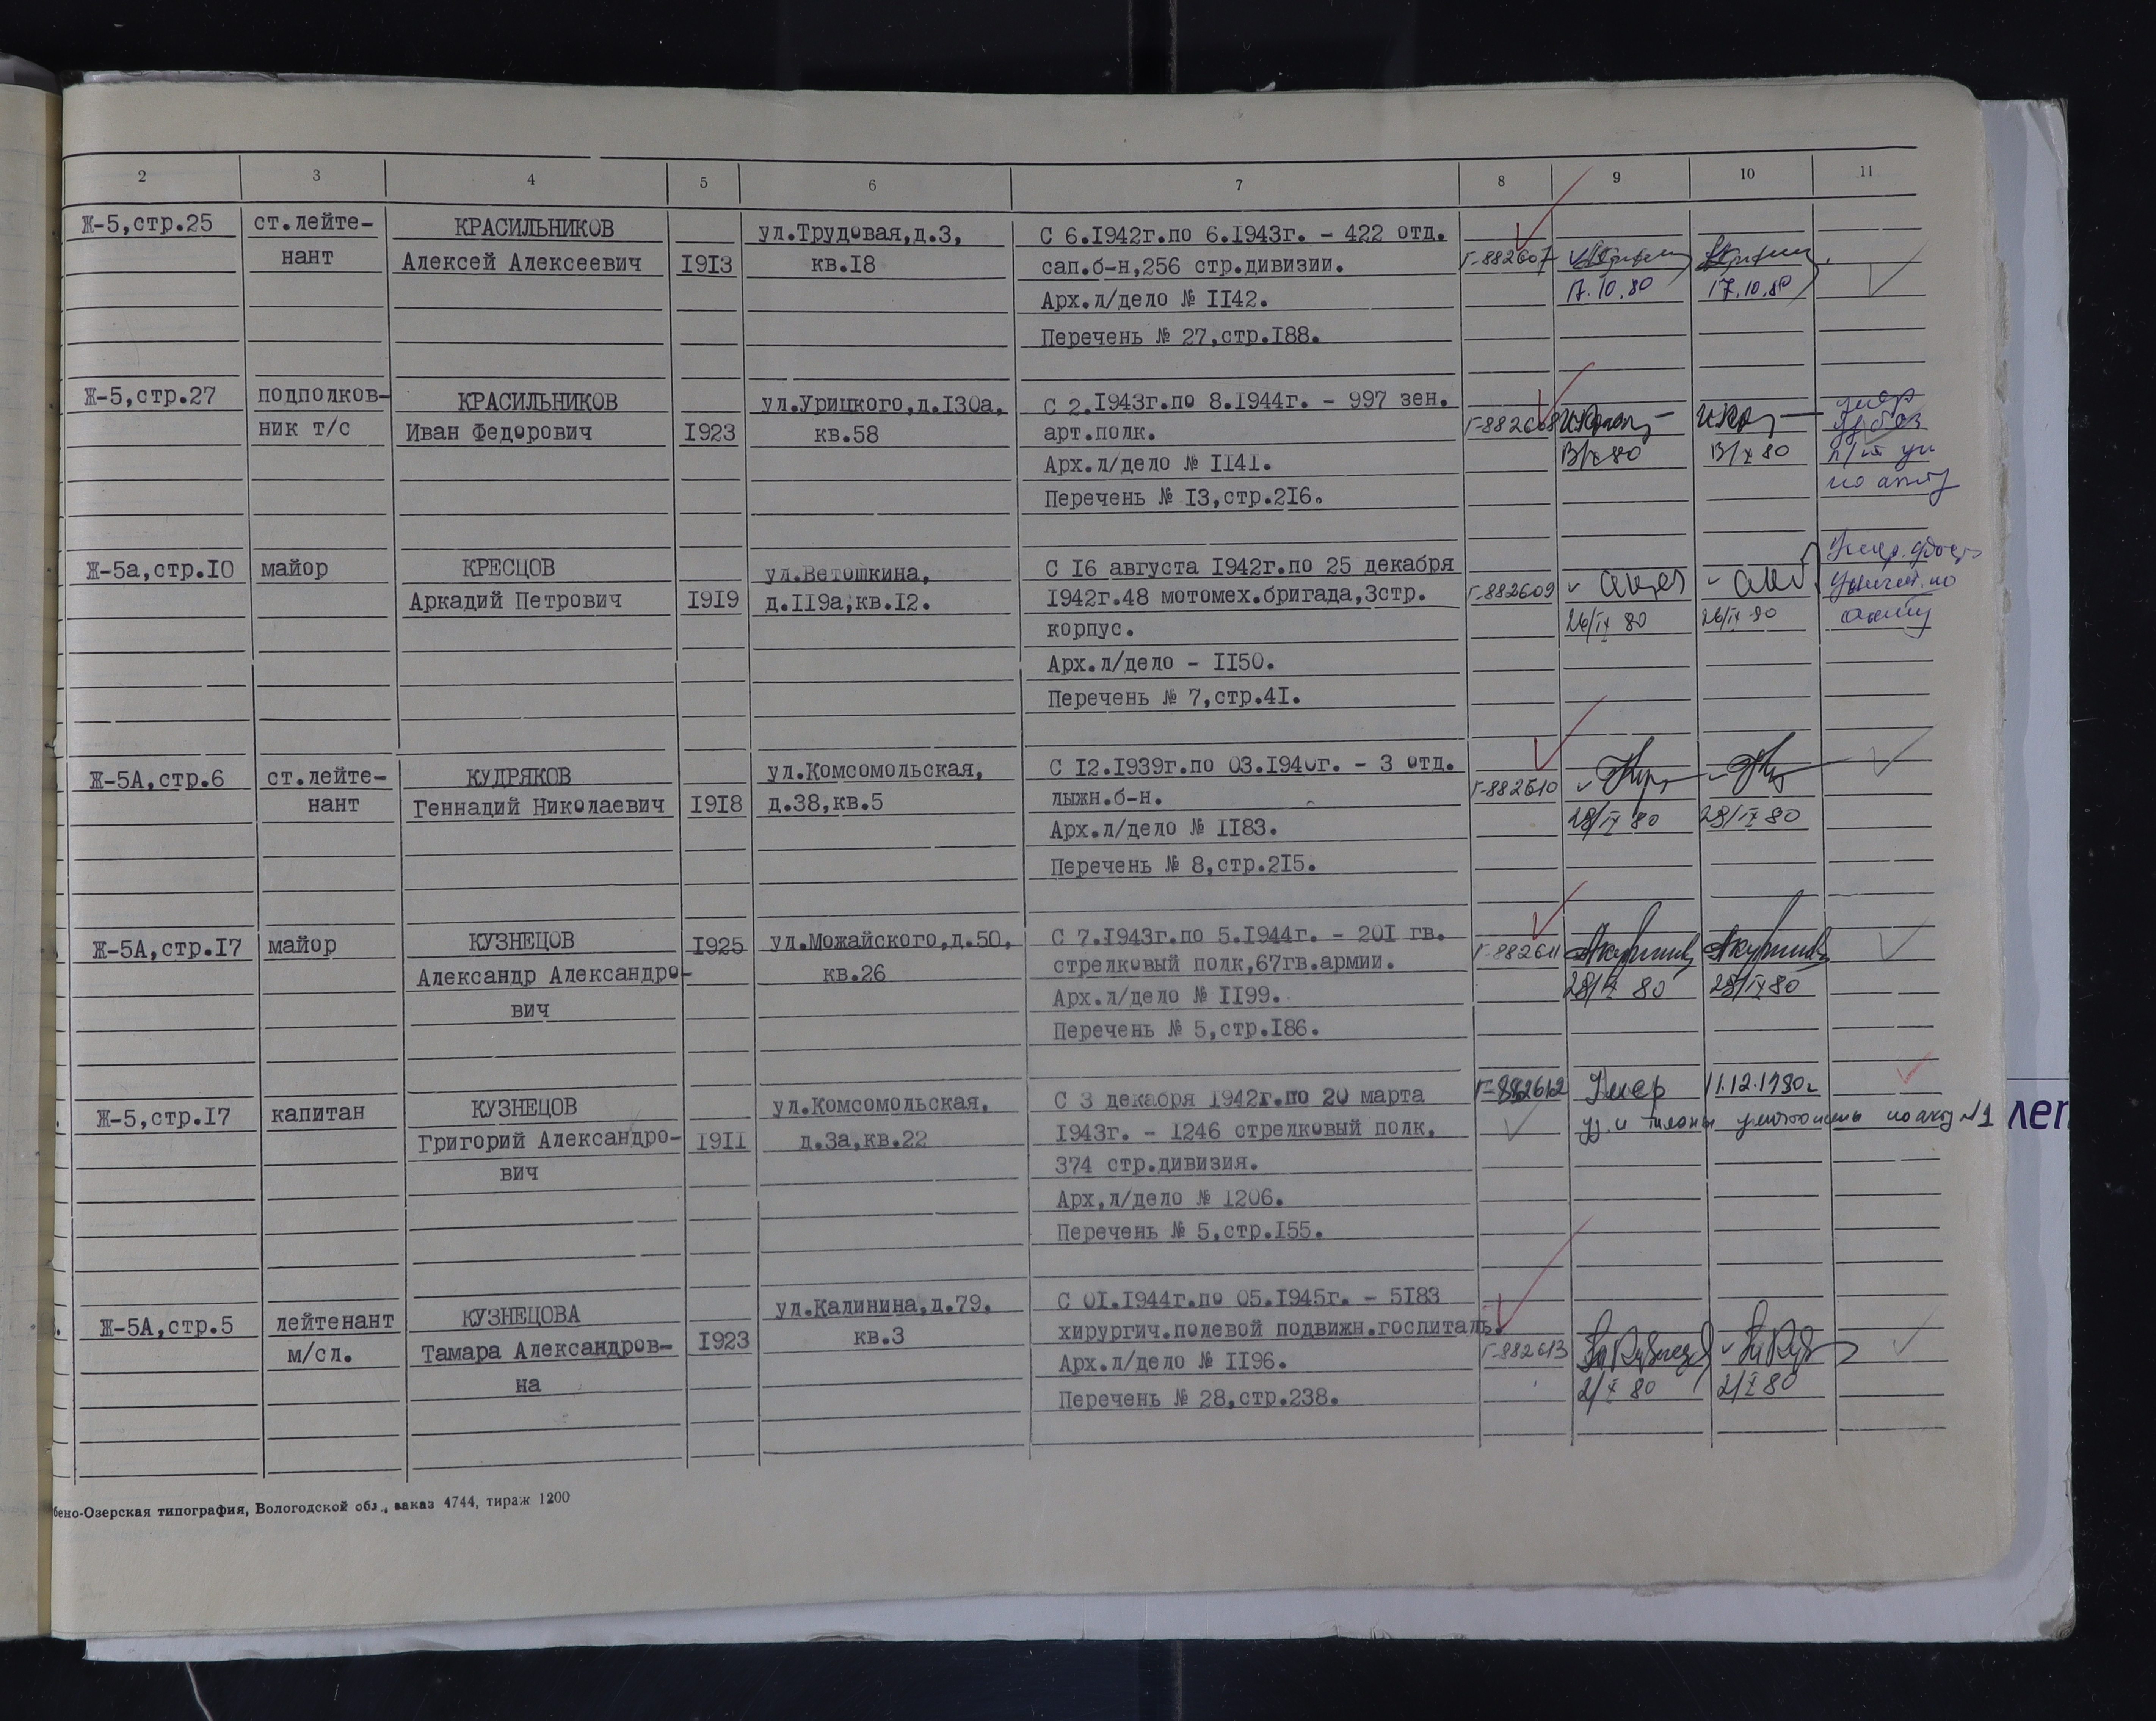 2 3 4 5 6 7 8 9 10 11
Ж-5,стр.25 ст.лейте- КРАСИЛЬНИКОВ ул.Трудовая,д.3, С 6.1942г.по 6.1943г. - 422 отд.
нант Алексей Алексеевич 1913 кв.18 сап.б-н,256 стр.дивизии. Г-882607
Арх.л/дело № 1142. 17.10.80 17.10.80
Перечень № 27,стр.188.
Ж-5,стр.27 подполков- КРАСИЛЬНИКОВ ул.Урицкого,д.130а, С 2.1943г.по 8.1944г. - 997 зен.
ник т/с Иван Федорович 1923 кв.58 арт.полк. Г-882608
Арх.л/дело № 1141. 13/X 80 13/X 80
Перечень № 13,стр.216.
Ж-5а,стр.10 майор КРЕСЦОВ ул.Ветошкина, С 16 августа 1942г.по 25 декабря
Аркадий Петрович 1919 д.119а,кв.12. 1942г.48 мотомех.бригада,3стр. Г-882609
корпус. 26/IX 80 26/IX 80
Арх.л/дело - 1150.
Перечень № 7,стр.41.
Ж-5А,стр.6 ст.лейте- КУДРЯКОВ ул.Комсомольская, С 12.1939г.по 03.1940г. - 3 отд.
нант Геннадий Николаевич 1918 д.38,кв.5 лыжн.б-н. Г-882610
Арх.л/дело № 1183. 28/IX 80 28/IX 80
Перечень № 8,стр.215.
Ж-5А,стр.17 майор КУЗНЕЦОВ 1925 ул.Можайского,д.50, С 7.1943г.по 5.1944г. - 201 гв.
Александр Александро- кв.26 стрелковый полк,67гв.армии. Г-882611
вич Арх.л/дело № 1199. 28/IX 80 28/IX 80
Перечень № 5,стр.186.
Ж-5,стр.17 капитан КУЗНЕЦОВ ул.Комсомольская, С 3 декабря 1942г.по 20 марта Г-882612 Умер 11.12.1980г
Григорий Александро- 1911 д.3а,кв.22 1943г. - 1246 стрелковый полк, уд. и талоны уничтожены по акту №1
вич 374 стр.дивизия.
Арх,л/дело № 1206.
Перечень № 5,стр.155.
Ж-5А,стр.5 лейтенант КУЗНЕЦОВА ул.Калинина,д.79, С 01.1944г.по 05.1945г. - 5183
м/сл. Тамара Александров- 1923 кв.3 хирургич.полевой подвижн.госпиталь.
на Арх.л/дело № 1196. Г-882613
Перечень № 28,стр.238. 2/X 80 2/X 80
бено-Озерская типография, Вологодской обл., заказ 4744, тираж 1200